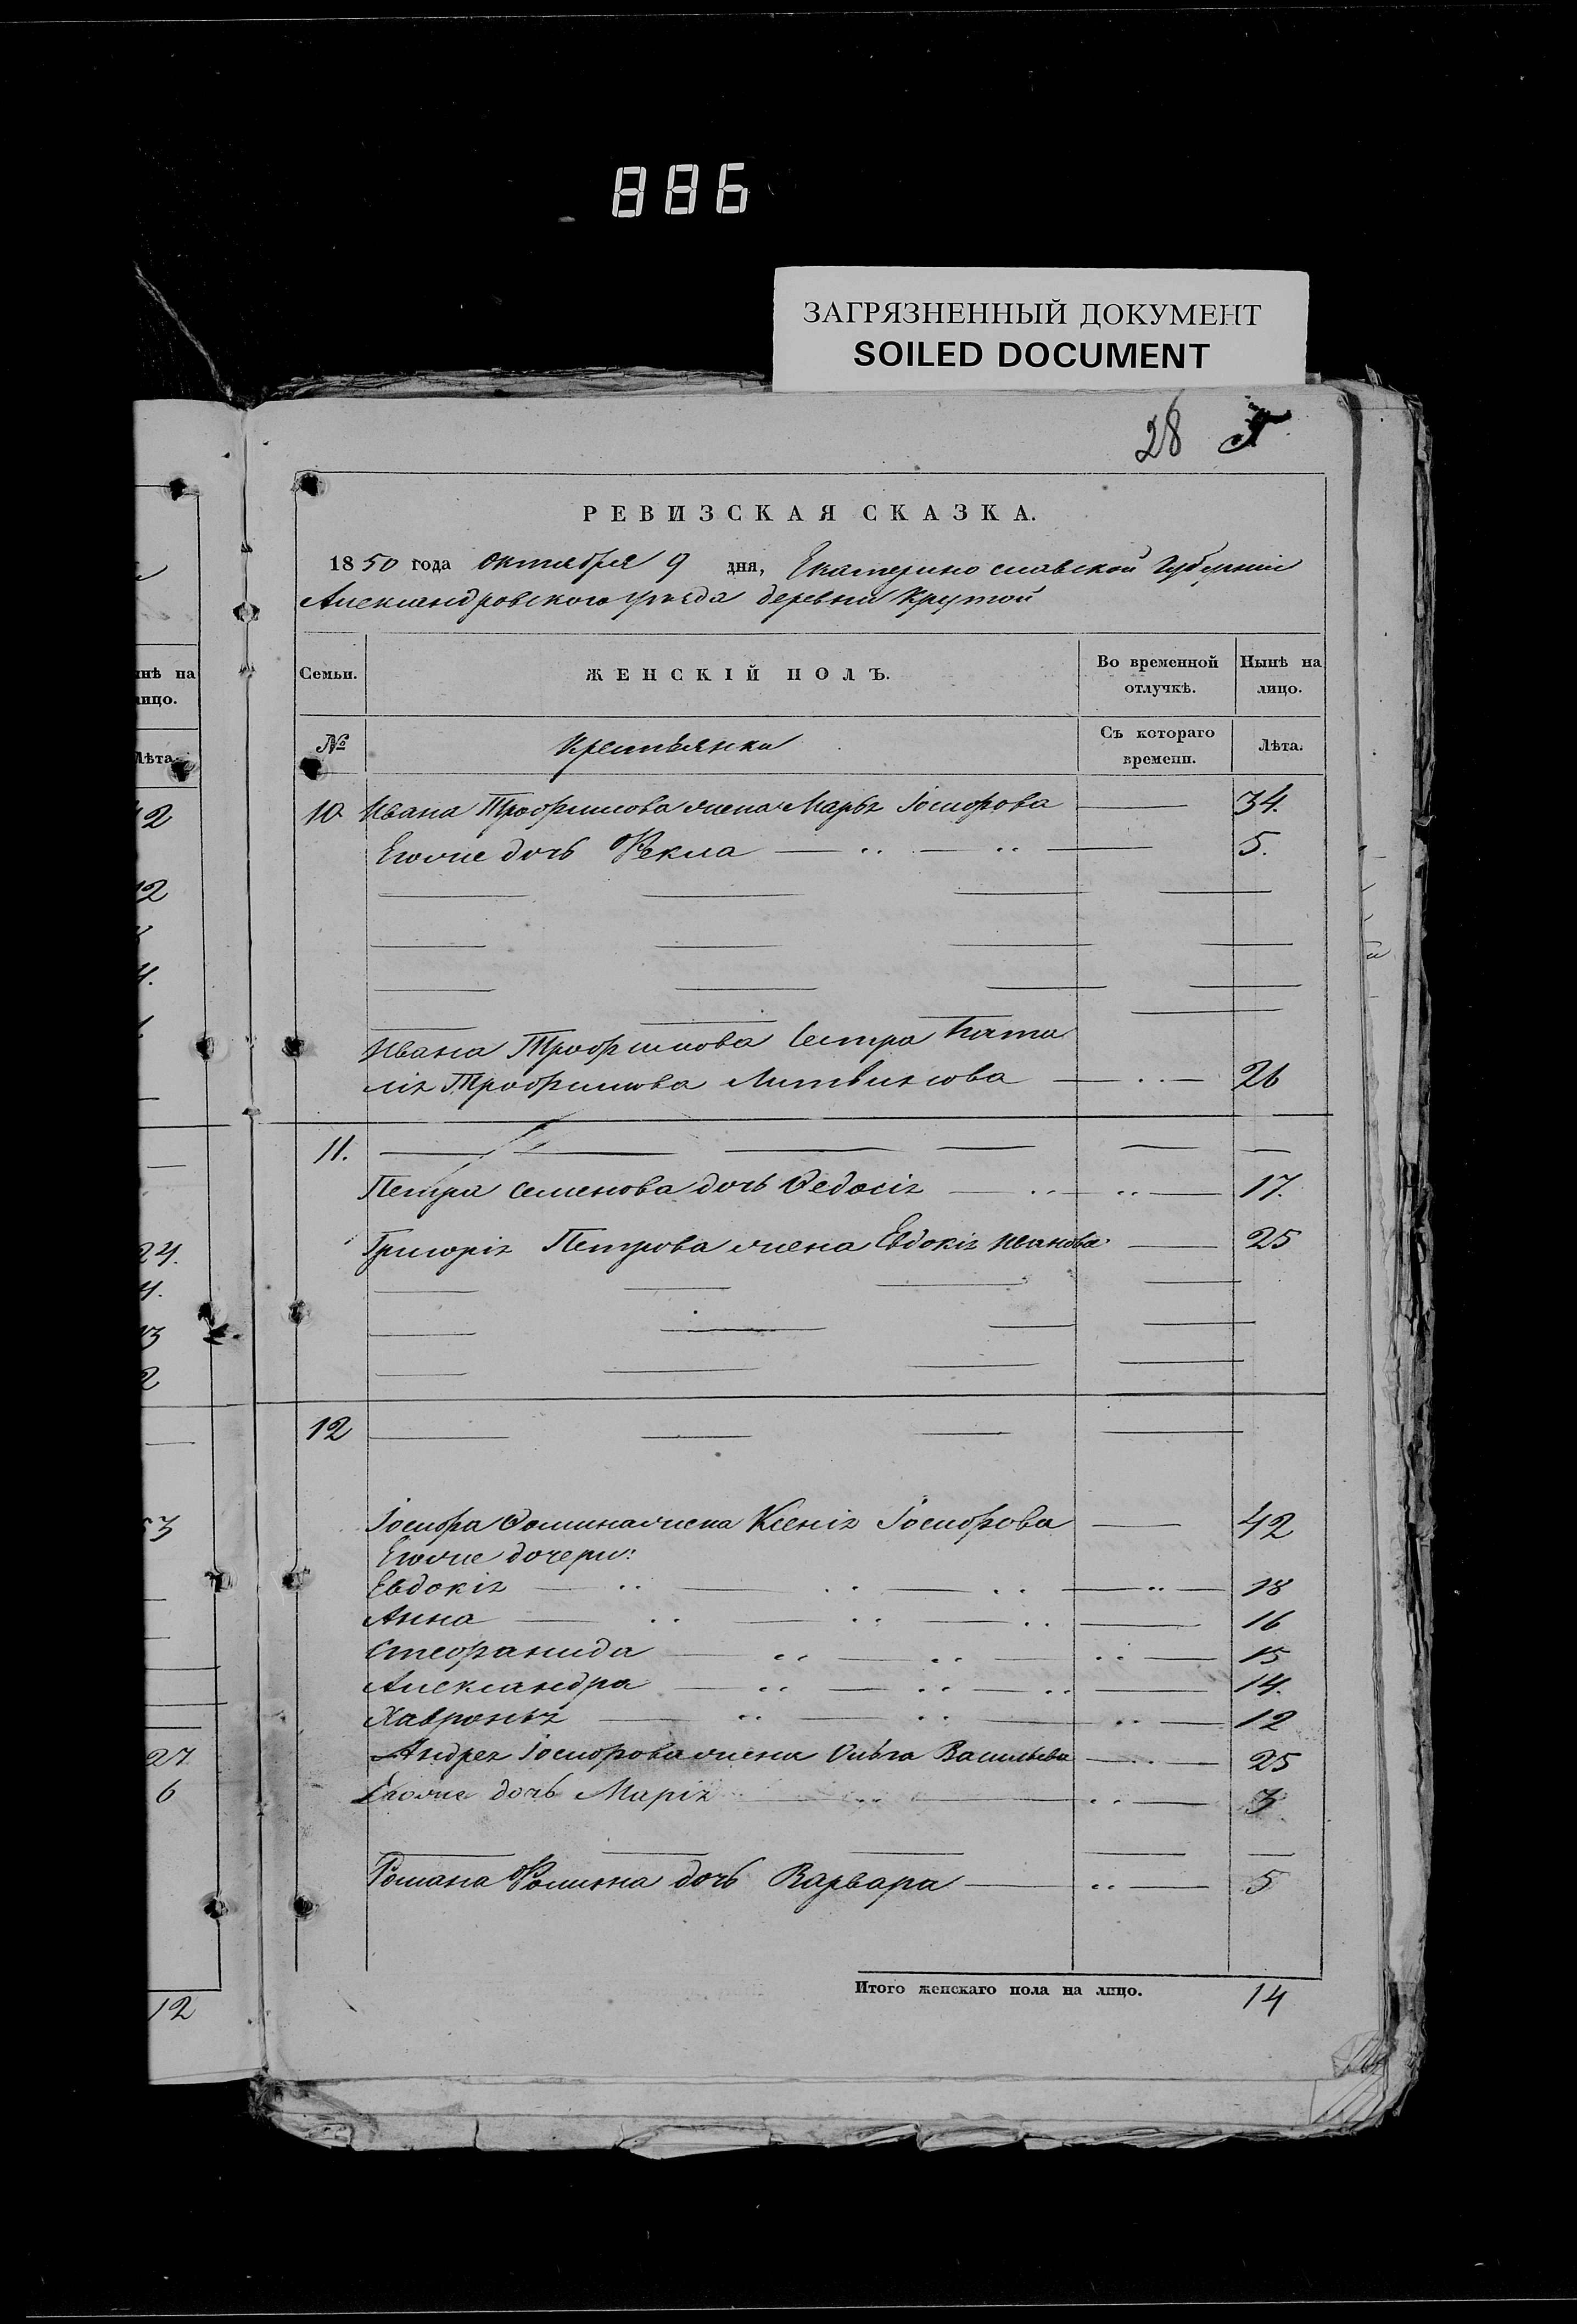 886
ЗАГРЯЗНЕННЫЙ ДОКУМЕНТ
SOILED DOCUMENT
28
РЕВИЗСКАЯ СКАЗКА.
1850 года октября 9 дня, Екатеринославской Губернии
Александровского уезда деревни Крутой
Семьи. ЖЕНСКІЙ ПОЛЪ. Во временной отлучкѣ. Нынѣ на лицо.
№ Крестьянки Съ котораго времени. Лѣта.
10 Ивана Трофимова жена Марья Іосифова 34.
Егоже дочь Фекла 5.
Ивана Трофимова Сестра Ната
лія Трофимова Литвинова 26
11.
Петра Семенова дочь Ѳедосія 17.
Григорія Петрова жена Евдокія Иванова 25
12
Іосифа Ѳомина жена Ксенія Іосифова 42
Егоже дочери:
Евдокія 18
Анна 16
Стефанида 15
Александра 14.
Хавронья 12
Андрея Іосифова жена Ольга Васильева 25
Егоже дочь Марія 3
Романа Фомина дочь Варвара 5
Итого женскаго пола на лицо. 14
инѣ на
ицо.
Лѣта.
12
12
4.
24.
4.
13
2
53
27
6
12